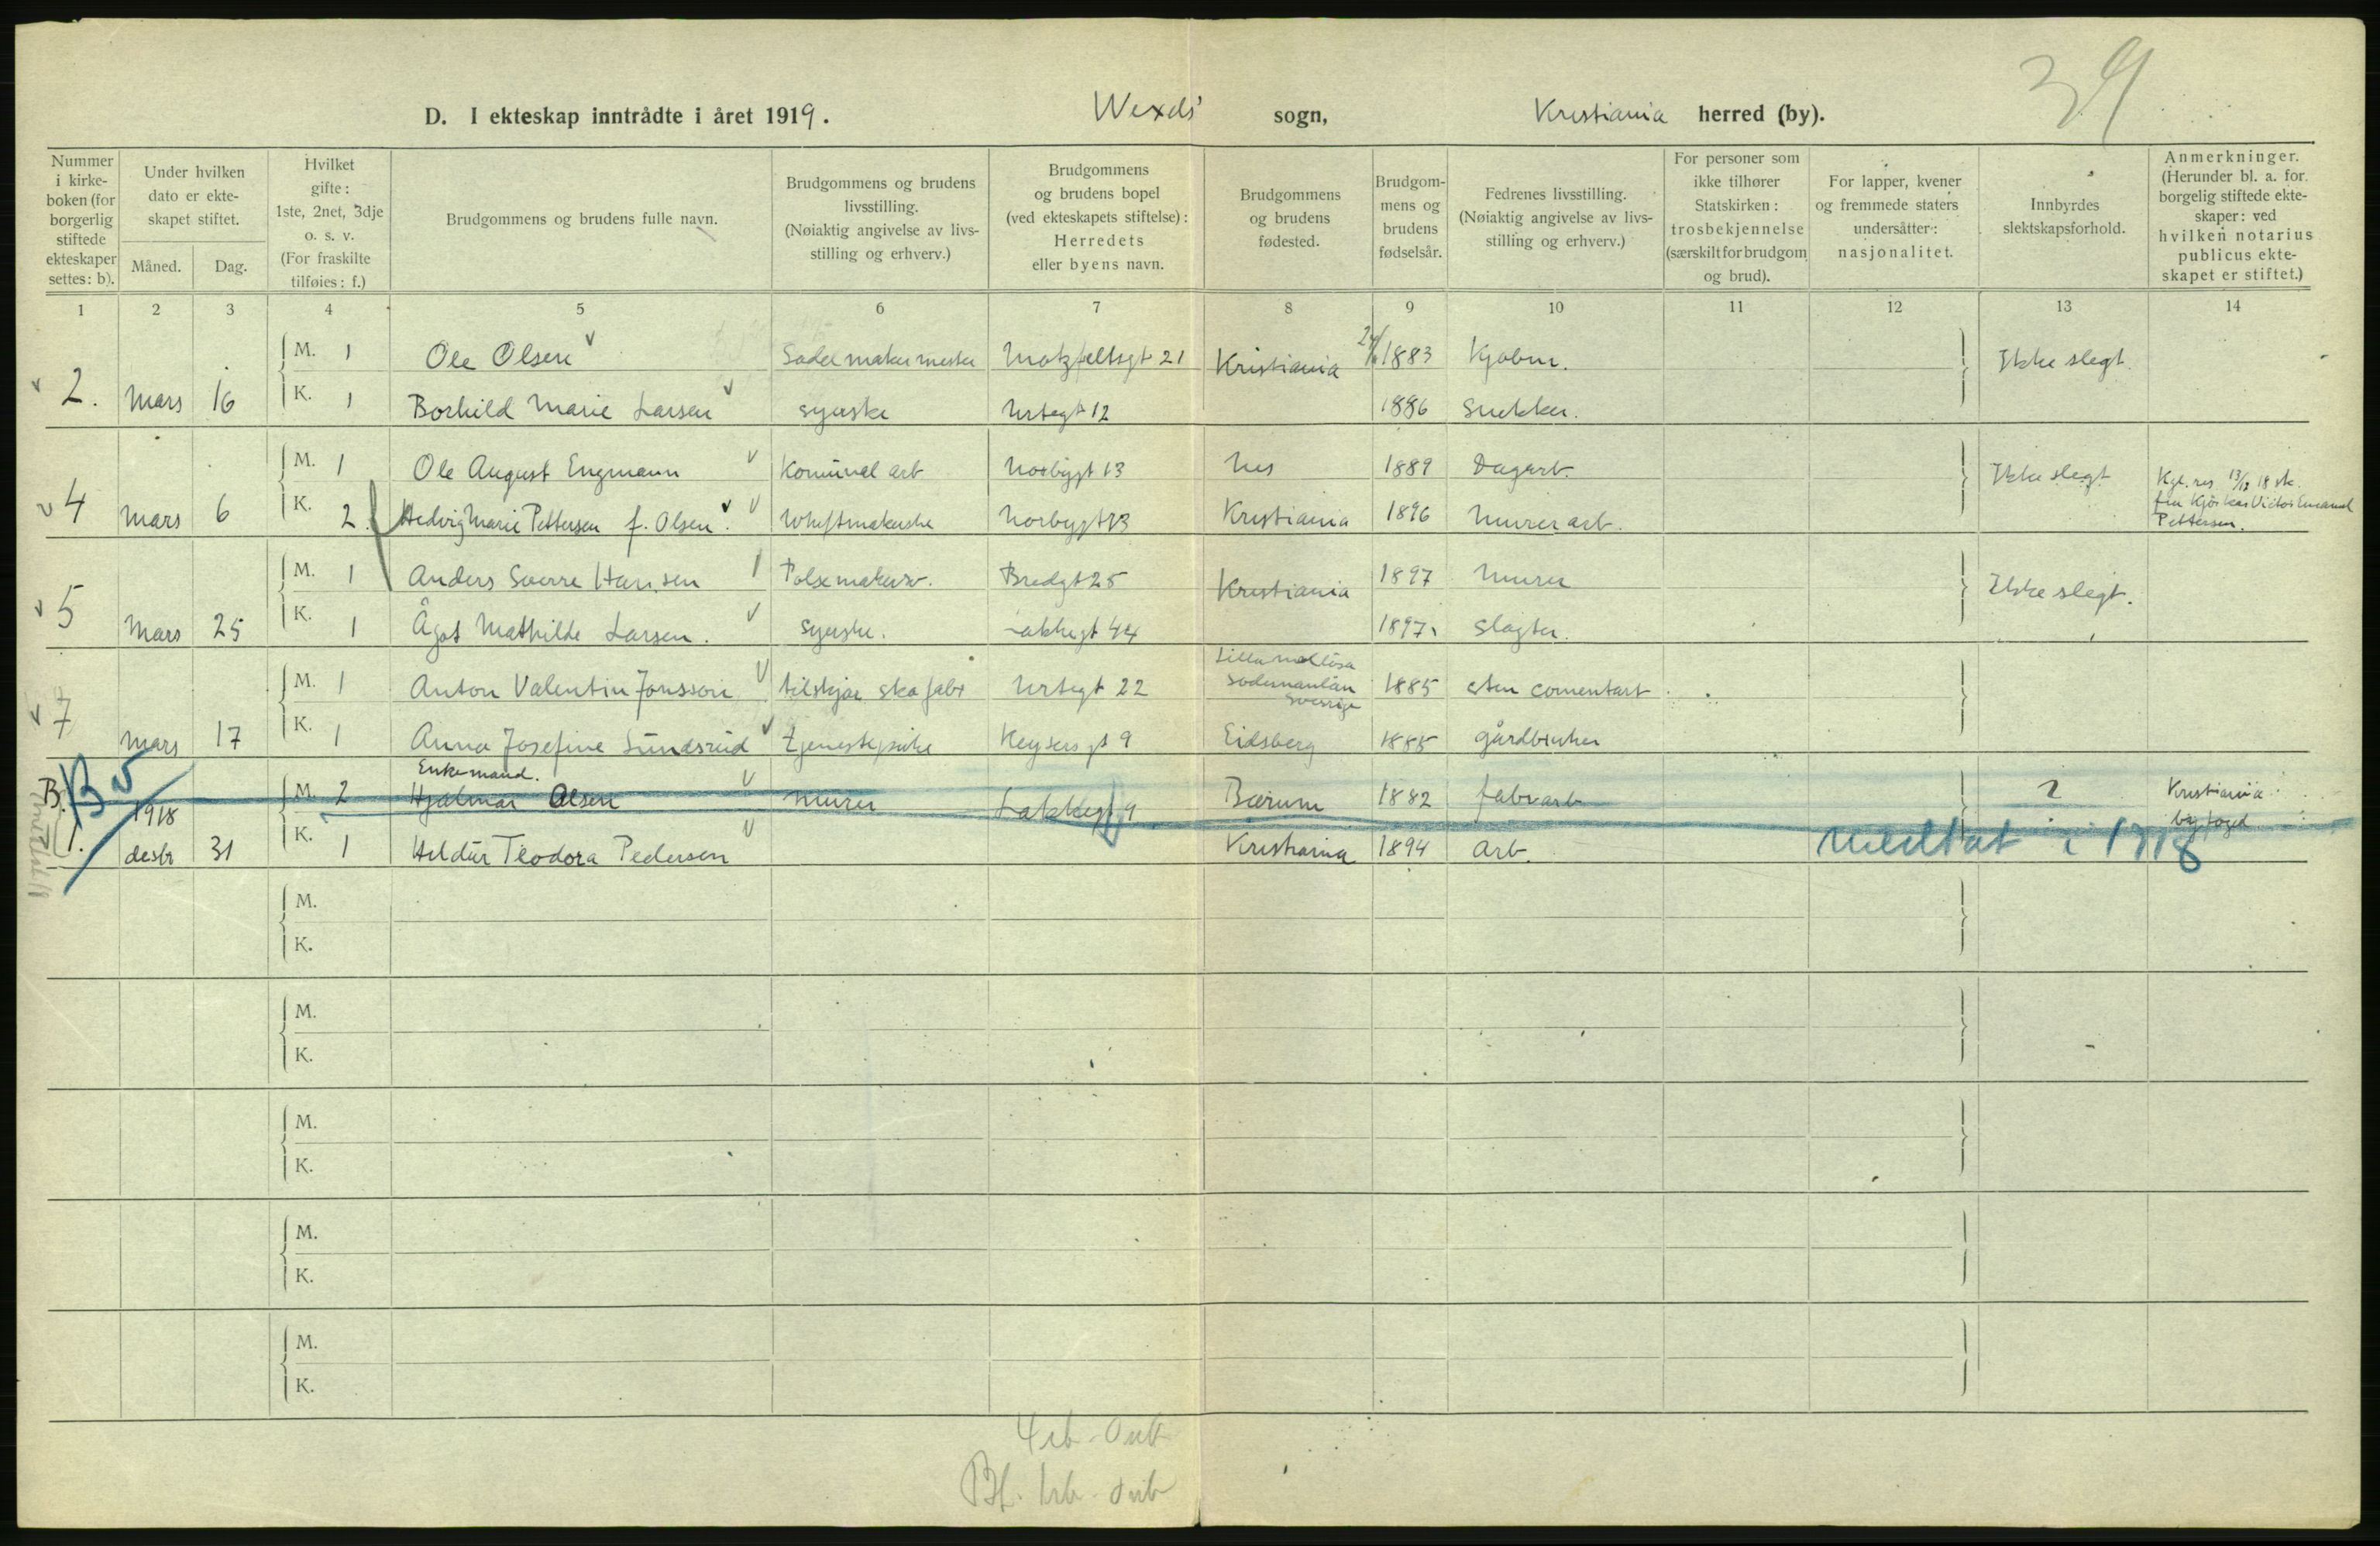 39
D. I ekteskap inntrådte i året 1919. Wexels' sogn, Kristiania herred (by).
Nummer i kirke-boken (for borgerlig stiftede ekteskaper settes: b).
Under hvilken dato er ekte-skapet stiftet.
Måned. Dag.
Hvilket gifte: 1ste, 2net, 3dje o. s. v. (For fraskilte tilføies: f.)
Brudgommens og brudens fulle navn.
Brudgommens og brudens livsstilling. (Nøiaktig angivelse av livs-stilling og erhverv.)
Brudgommens og brudens bopel (ved ekteskapets stiftelse): Herredets eller byens navn.
Brudgommens og brudens fødested.
Brudgom-mens og brudens fødselsår.
Fedrenes livsstilling. (Nøiaktig angivelse av livs-stilling og erhverv.)
For personer som ikke tilhører Statskirken: trosbekjennelse (særskilt for brudgom og brud).
For lapper, kvener og fremmede staters undersåtter: nasjonalitet.
Innbyrdes slektskapsforhold.
Anmerkninger. (Herunder bl. a. for borgelig stiftede ekte-skaper: ved hvilken notarius publicus ekte-skapet er stiftet.)
1 2 3 4 5 6 7 8 9 10 11 12 13 14
M. 1 Ole Olsen Motzfeltsgt 21 Kristiania 1883 Kjøbm. Ikke slegt.
2. Mars 16 K. 1 Borhild Marie Larsen syerske Urtegt 12 1886 Snekker.
M. 1 Ole August Engmann Komunal arb Norbygt 13 Nes 1889 Dagarb. Ikke slegt Kgl. res 13/12 18 sk.
4 Mars 6 K. 2. Hedvig Marie Pettersen f. Olsen. Norbygt 13 Kristiania 1896 Murer arb. fra Victor Emanuel
Pettersen.
M. 1 Anders Sverre Hansen Pølsemakersv. Bredgt 25 Kristiania 1897 Murer Ikke slegt.
5 Mars 25 K. 1 Ågot Mathilde Larsen. Syerske. Lakkegt 44 1897 Slagter.
M. 1 Anton Valentin Jonsson tilskjær skofabr Urtegt 22 Lilla Mellösa
Södermanlän
Sverrige 1885
7 Mars 17 K. 1 Anna Josefine Sundsrud tjenestepike Keysersgt 9 Eidsberg 1885 gårdbruker
Enkemand.
B. B M. 2 Hjalmar Olsen Murer Lakkegt 9 Bærum 1882 fabrarb Kristiania
byfoged
1. 1918
desbr 31 K. 1 Heldur Teodora Pedersen Kristiania 1894 Arb. Medtat i 1918
M.
K.
M.
K.
M.
K.
M.
K.
M.
K.